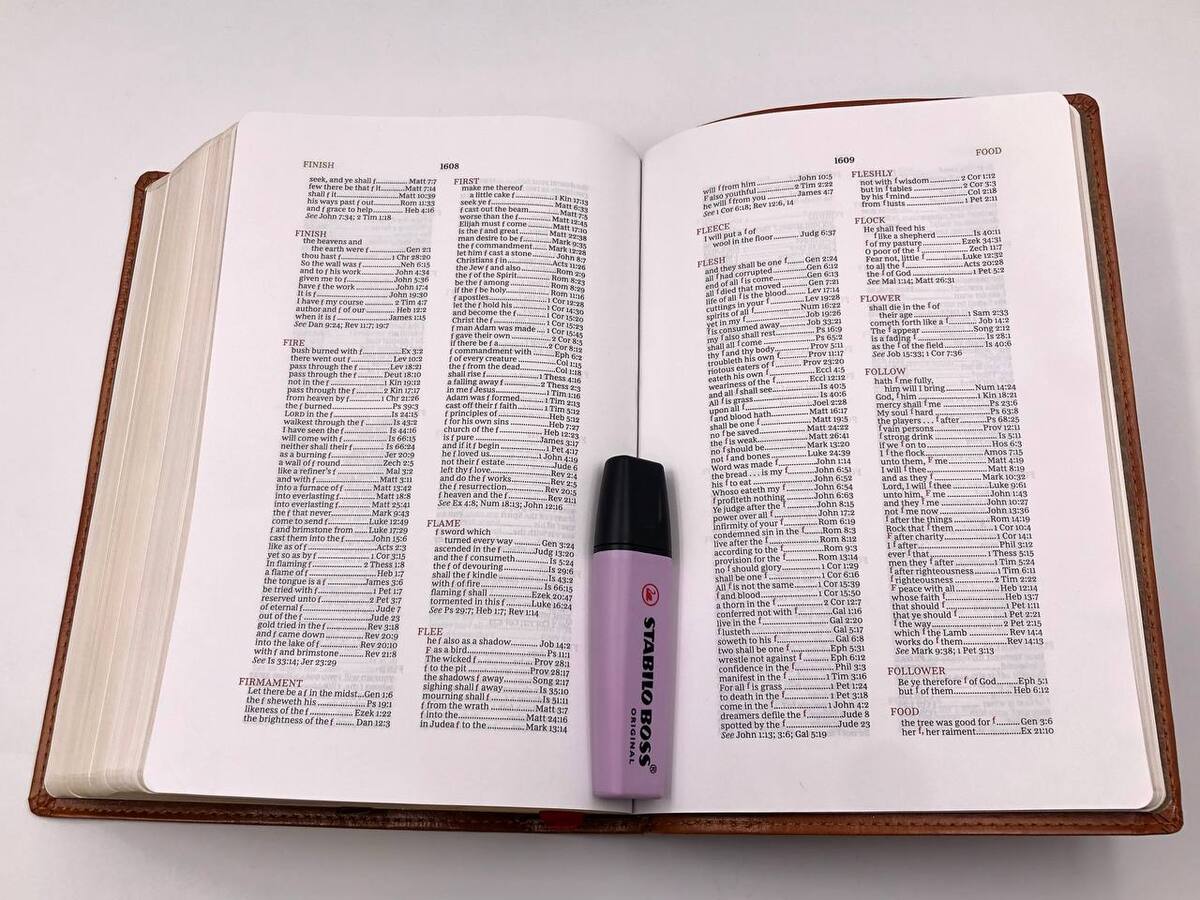 FINISH
1608
seek, and ye shall f........ Matt 7:7
few there be that f it........ Matt 7:14
shall f it........ Matt 10:39
his ways past f out........ Rom 11:33
and f grace to help........ Heb 4:16
See John 7:34; 2 Tim 1:18
FINISH
the heavens and
the earth were f........ Gen 2:1
thou hast f........ 1 Chr 28:20
So the wall was f........ Neh 6:15
and to f his work........ John 4:34
given me to f........ John 5:36
have f the work........ John 17:4
It is f........ John 19:30
I have f my course........ 2 Tim 4:7
author and f of our........ Heb 12:2
when it is f........ James 1:15
See Dan 9:24; Rev 11:7; 19:7
FIRE
bush burned with f........ Ex 3:2
there went out f........ Lev 10:2
pass through the f........ Lev 18:21
pass through the f........ Deut 18:10
not in the f........ 1 Kin 19:12
pass through the f........ 2 Kin 17:17
from heaven by f........ 1 Chr 21:26
the f burned........ Ps 39:3
LORD in the f........ Is 24:15
walkest through the f........ Is 43:2
I have seen the f........ Is 44:16
will come with f........ Is 66:15
neither shall their f........ Is 66:24
as a burning f........ Jer 20:9
a wall of f round........ Zech 2:5
like a refiner's f........ Mal 3:2
and with f........ Matt 3:11
into a furnace of f........ Matt 13:42
into everlasting f........ Matt 18:8
into everlasting f........ Matt 25:41
the f that never........ Mark 9:43
come to send f........ Luke 12:49
f and brimstone from........ Luke 17:29
cast them into the f........ John 15:6
like as of f........ Acts 2:3
yet so as by f........ 1 Cor 3:15
In flaming f........ 2 Thess 1:8
a flame of f........ Heb 1:7
the tongue is a f........ James 3:6
be tried with f........ 1 Pet 1:7
reserved unto f........ 2 Pet 3:7
of eternal f........ Jude 7
out of the f........ Jude 23
gold tried in the f........ Rev 3:18
and f came down........ Rev 20:9
into the lake of f........ Rev 20:10
with f and brimstone........ Rev 21:8
See Is 33:14; Jer 23:29
FIRMAMENT
Let there be a f in the midst...Gen 1:6
the f sheweth his........ Ps 19:1
likeness of the f........ Ezek 1:22
the brightness of the f........ Dan 12:3
FIRST
make me thereof
a little cake f........ 1 Kin 17:13
seek ye f........ Matt 6:33
f cast out the beam........ Matt 7:5
worse than the f........ Matt 12:45
Elijah must f come........ Matt 17:10
is the f and great........ Matt 22:38
man desire to be f........ Mark 9:35
the f commandment........ Mark 12:28
let him f cast a stone........ John 8:7
Christians f in........ Acts 11:26
the Jew f and also........ Rom 2:9
the f of the Spirit........ Rom 8:23
be the f among........ Rom 8:29
if the f be holy........ Rom 11:16
f apostles........ 1 Cor 12:28
let the f hold his........ 1 Cor 14:30
and become the f........ 1 Cor 15:20
Christ the f........ 1 Cor 15:23
f man Adam was made........ 1 Cor 15:45
f gave their own........ 2 Cor 8:5
if there be f a........ 2 Cor 8:12
f commandment with........ Eph 6:2
f of every creature........ Col 1:15
the f from the dead........ Col 1:18
shall rise f........ 1 Thess 4:16
a falling away f........ 2 Thess 2:3
in me f Jesus........ 1 Tim 1:16
Adam was f formed........ 1 Tim 2:13
cast off their f faith........ 1 Tim 5:12
f principles of........ Heb 5:12
f for his own sins........ Heb 7:27
church of the f........ Heb 12:23
is f pure........ James 3:17
and if it f begin........ 1 Pet 4:17
he f loved us........ 1 John 4:19
not their f estate........ Jude 6
left thy f love........ Rev 2:4
and do the f works........ Rev 2:5
the f resurrection........ Rev 20:5
f heaven and the f........ Rev 21:1
See Ex 4:8; Num 18:13; John 12:16
FLAME
f sword which
turned every way........ Gen 3:24
ascended in the f........ Judg 13:20
and the f consumeth........ Is 5:24
the f of devouring........ Is 29:6
shall the f kindle........ Is 43:2
with f of fire........ Is 66:15
flaming f shall........ Ezek 20:47
tormented in this f........ Luke 16:24
See Ps 29:7; Heb 1:7; Rev 1:14
FLEE
he f also as a shadow........ Job 14:2
F as a bird........ Ps 11:1
The wicked f........ Prov 28:1
f to the pit........ Prov 28:17
the shadows f away........ Song 2:17
sighing shall f away........ Is 35:10
mourning shall f........ Is 51:11
f from the wrath........ Matt 3:7
f into the........ Matt 24:16
in Judea f to the........ Mark 13:14
1609
FOOD
will f from him........ John 10:5
F also youthful........ 2 Tim 2:22
he will f from you........ James 4:7
See 1 Cor 6:18; Rev 12:6, 14
FLEECE
I will put a f of
wool in the floor........ Judg 6:37
FLESH
and they shall be one f........ Gen 2:24
all f had corrupted........ Gen 6:12
end of all f is come........ Gen 6:13
all f died that moved........ Gen 7:21
life of all f is the blood........ Lev 17:14
cuttings in your f........ Lev 19:28
spirits of all f........ Num 16:22
yet in my f........ Job 19:26
f is consumed away........ Job 33:21
my f also shall rest........ Ps 16:9
shall all f come........ Ps 65:2
thy f and thy body........ Prov 5:11
troubleth his own f........ Prov 11:17
riotous eaters of f........ Prov 23:20
eateth his own f........ Eccl 4:5
weariness of the f........ Eccl 12:12
and all f shall see........ Is 40:5
All f is grass........ Is 40:6
upon all f........ Joel 2:28
f and blood hath........ Matt 16:17
shall be one f........ Matt 19:5
no f be saved........ Matt 24:22
the f is weak........ Matt 26:41
no f should be........ Mark 13:20
not f and bones........ Luke 24:39
Word was made f........ John 1:14
the bread . . . is my f........ John 6:51
his f to eat........ John 6:52
Whoso eateth my f........ John 6:54
f profiteth nothing........ John 6:63
Ye judge after the f........ John 8:15
power over all f........ John 17:2
infirmity of your f........ Rom 6:19
condemned sin in the f........ Rom 8:3
live after the f........ Rom 8:12
according to the f........ Rom 9:3
provision for the f........ Rom 13:14
no f should glory........ 1 Cor 1:29
shall be one f........ 1 Cor 6:16
All f is not the same........ 1 Cor 15:39
f and blood........ 1 Cor 15:50
a thorn in the f........ 2 Cor 12:7
conferred not with f........ Gal 1:16
live in the f........ Gal 2:20
f lusteth........ Gal 5:17
soweth to his f........ Gal 6:8
two shall be one f........ Eph 5:31
wrestle not against f........ Eph 6:12
confidence in the f........ Phil 3:3
manifest in the f........ 1 Tim 3:16
For all f is grass........ 1 Pet 1:24
to death in the f........ 1 Pet 3:18
come in the f........ 1 John 4:2
dreamers defile the f........ Jude 8
spotted by the f........ Jude 23
See John 1:13; 3:6; Gal 5:19
FLESHLY
not with f wisdom........ 2 Cor 1:12
but in f tables........ 2 Cor 3:3
by his f mind........ Col 2:18
from f lusts........ 1 Pet 2:11
FLOCK
He shall feed his
f like a shepherd........ Is 40:11
f of my pasture........ Ezek 34:31
O poor of the f........ Zech 11:7
Fear not, little f........ Luke 12:32
to all the f........ Acts 20:28
the f of God........ 1 Pet 5:2
See Mal 1:14; Matt 26:31
FLOWER
shall die in the f of
their age........ 1 Sam 2:33
cometh forth like a f........ Job 14:2
The f appear........ Song 2:12
is a fading f........ Is 28:1
as the f of the field........ Is 40:6
See Job 15:33; 1 Cor 7:36
FOLLOW
hath f me fully,
him will I bring........ Num 14:24
God, f him........ 1 Kin 18:21
mercy shall f me........ Ps 23:6
My soul f hard........ Ps 63:8
the players . . . f after........ Ps 68:25
f vain persons........ Prov 12:11
f strong drink........ Is 5:11
if we f on to........ Hos 6:3
I f the flock........ Amos 7:15
unto them, F me........ Matt 4:19
I will f thee........ Matt 8:19
and as they f........ Mark 10:32
Lord, I will f thee........ Luke 9:61
unto him, F me........ John 1:43
and they f me........ John 10:27
not f me now........ John 13:36
f after the things........ Rom 14:19
Rock that f them........ 1 Cor 10:4
F after charity........ 1 Cor 14:1
I f after........ Phil 3:12
ever f that........ 1 Thess 5:15
men they f after........ 1 Tim 5:24
f after righteousness........ 1 Tim 6:11
f righteousness........ 2 Tim 2:22
F peace with all........ Heb 12:14
whose faith f........ Heb 13:7
that should f........ 1 Pet 1:11
that ye should f........ 1 Pet 2:21
f the way........ 2 Pet 2:15
which f the Lamb........ Rev 14:4
works do f them........ Rev 14:13
See Mark 9:38; 1 Pet 3:13
FOLLOWER
Be ye therefore f of God........ Eph 5:1
but f of them........ Heb 6:12
FOOD
the tree was good for f........ Gen 3:6
her f, her raiment........ Ex 21:10
STABILO BOSS®
ORIGINAL